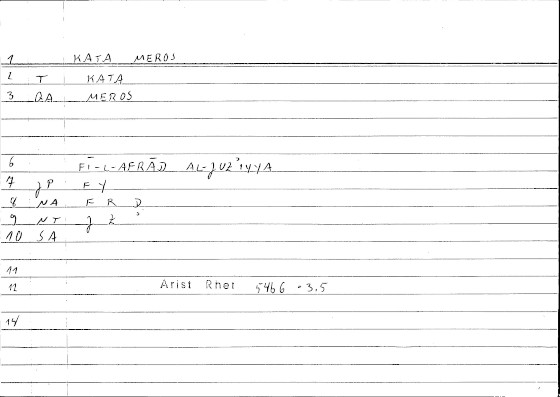 1 KATA MEROS
2 T KATA
3 QA MEROS
6 FĪ-L-AFRĀD AL-ǦUZʾIYYA
7 ǦP F Y
8 NA F R D
9 NT Ǧ Z ʾ
10 SA
11
12 Arist Rhet 54b6 -3.5
14